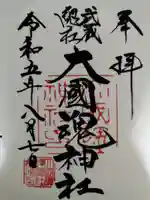 奉拝
武蔵
総社
大國魂神社
令和五年八月七日